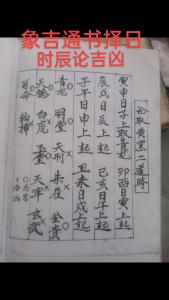 象吉通书择日
时辰论吉凶
論取黄黑二道時
寅申日子上取青起 卯酉日寅上起
辰戌日辰上起 巳亥日午上起
子午日申上起 丑未日戌上起
青龙○ 明堂○ 天刑× 朱雀× 金貴○
天德○ 白虎× 玉堂○ 天牢× 玄武×
司命○